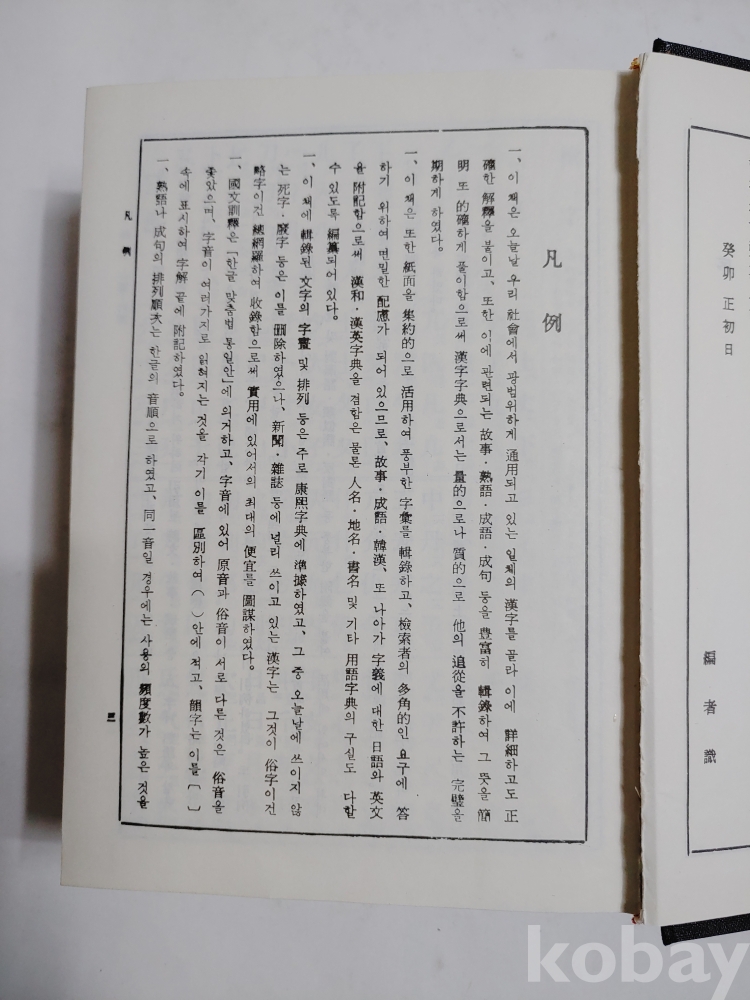 癸卯 正初日
編者識
凡例
一、이 책은 오늘날 우리 社會에서 광범위하게 通用되고 있는 일체의 漢字를 골라 이에 詳細하고도 正
確한 解釋을 붙이고、또한 이에 관련되는 故事·熟語·成語·成句 등을 豊富히 輯錄하여 그 뜻을 簡
明 또 的確하게 풀이함으로써 漢字字典으로서는 量的으로나 質的으로 他의 追從을 不許하는 完璧을
期하게 하였다。
一、이 책은 또한 紙面을 集約的으로 活用하여 풍부한 字彙를 輯錄하고、檢索者의 多角的인 요구에 答
하기 위하여 면밀한 配慮가 되어 있으므로、故事·成語·韓漢、또 나아가 字義에 대한 日語와 英文
을 附記함으로써 漢和·漢英字典을 겸함은 물론 人名·地名·書名 및 기타 用語字典의 구실도 다할
수 있도록 編纂되어 있다。
一、이 책에 輯錄된 文字의 字畫 및 排列 등은 주로 康熙字典에 準據하였고、그 중 오늘날에 쓰이지 않
는 死字·廢字 등은 이를 刪除하였으나、新聞·雜誌 등에 널리 쓰이고 있는 漢字는 그것이 俗字이건
略字이건 總網羅하여 收錄함으로써 實用에 있어서의 최대의 便宜를 圖謀하였다。
一、國文訓釋은「한글 맞춤법 통일안」에 의거하고、字音에 있어 原音과 俗音이 서로 다른 것은 俗音을
좇았으며、字音이 여러가지로 읽혀지는 것을 각기 이를 區別하여 ( ) 안에 적고、韻字는 이를 〔 〕
속에 표시하여 字解 끝에 附記하였다。
一、熟語나 成句의 排列順次는 한글의 音順으로 하였고、同一音일 경우에는 사용의 頻度數가 높은 것을
凡例
三
kobay